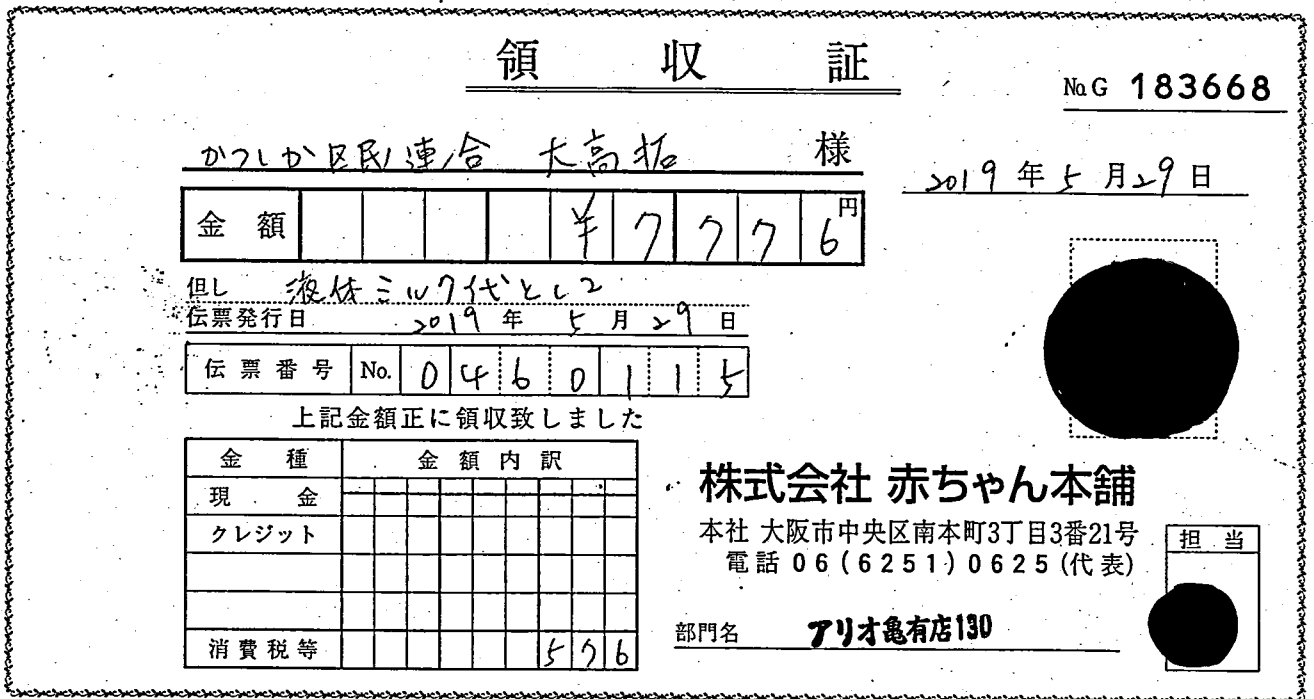 領収証
No.G 183668
かつしか区民連合 大高拓 様
2019年5月29日
金額 ¥7776円
但し 液体ミルク代として
伝票発行日 2019年5月29日
伝票番号 No. 0460115
上記金額正に領収致しました
金種 金額内訳
現金
クレジット
消費税等 576
株式会社 赤ちゃん本舗
本社 大阪市中央区南本町3丁目3番21号
電話 06(6251)0625(代表)
担当
部門名 アリオ亀有店130